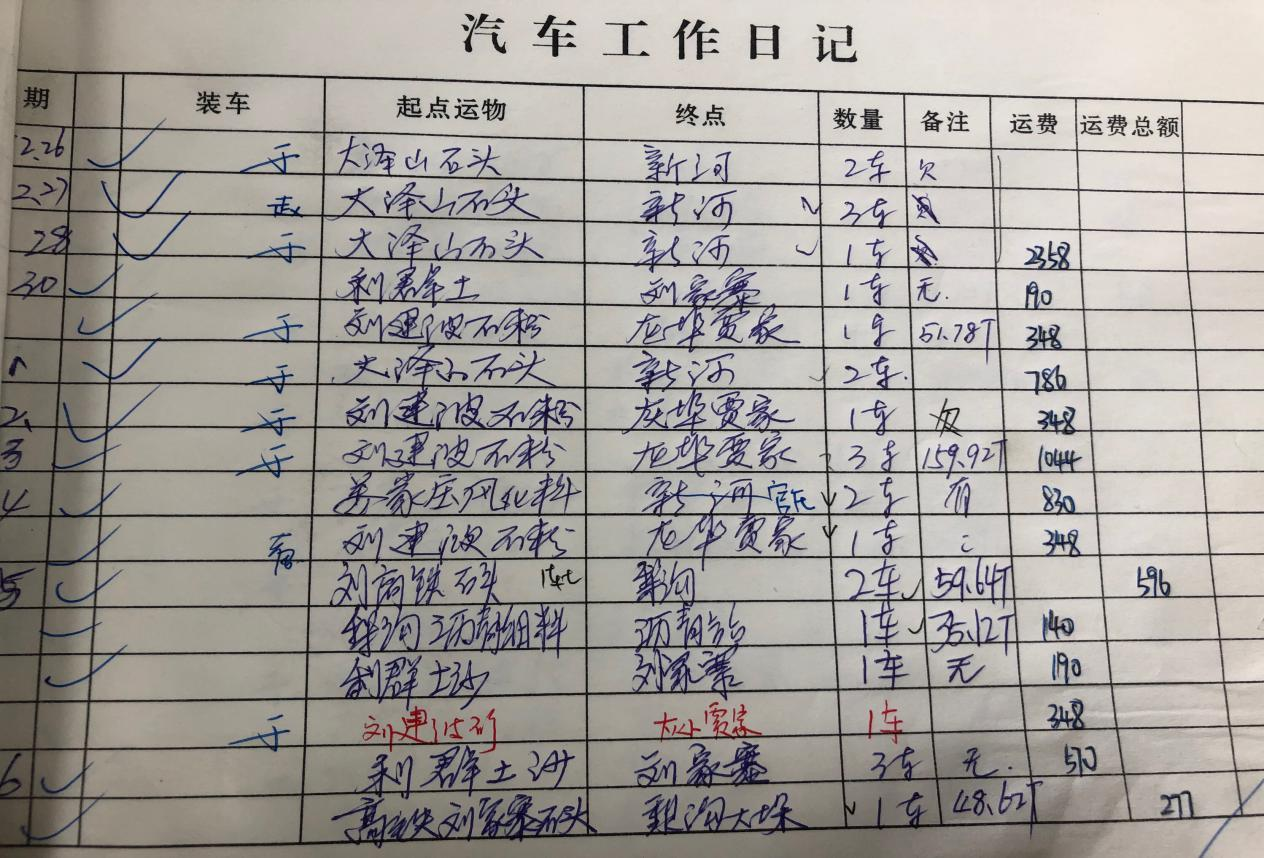 汽车工作日记
期 装车 起点运物 终点 数量 备注 运费 运费总额
2.26 于 大泽山石头 新河 2车 欠
2.27 大泽山石头 新河 3车
28 于 大泽山石头 新河 1车 2358
30 利群土 刘家寨 1车 无. 190
于 刘建波石粉 灰埠贾家 1车 51.78T 348
1 于 大泽山石头 新河 2车. 786
2. 于 刘建波石粉 灰埠贾家 1车 348
3 于 刘建波石粉 灰埠贾家 3车 159.92T 1044
4 家庄风化料 新河 2车 有 830
刘建波石粉 灰埠贾家 1车 348
5 刘高铁石头 2车 59.64T 596
沥青细料 沥青站 1车 35.12T 140
利群土沙 刘家寨 1车 无 190
于 刘建波 贾家 1车 348
6 利群土沙 刘家寨 3车 无. 570
高铁刘家寨石头 1车 48.62T 277